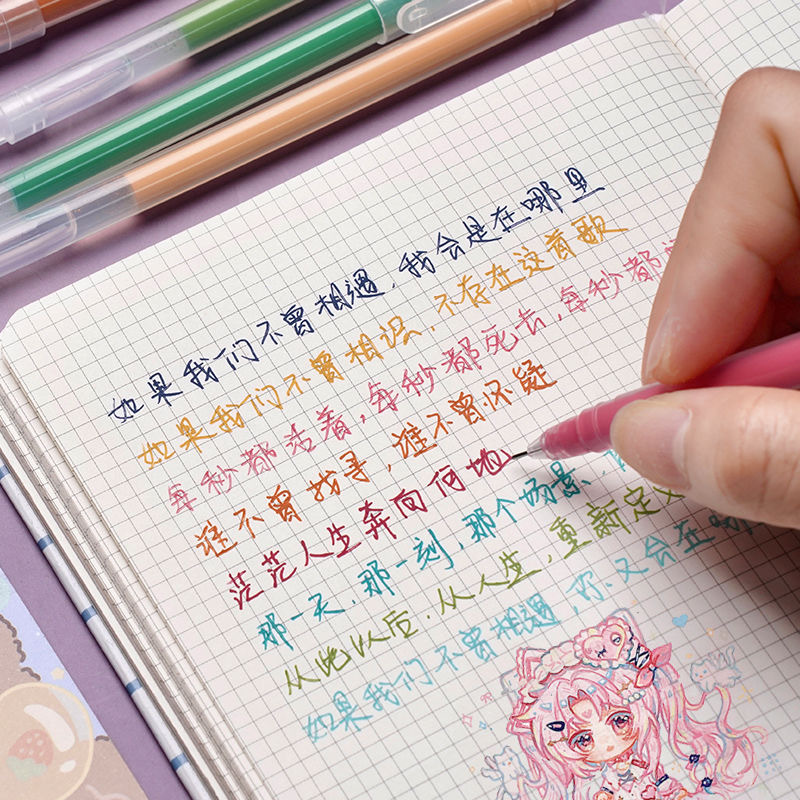 如果我们不曾相遇,我会是在哪里
如果我们不曾相识,不存在这首歌
每秒都活着,每秒都死去,每秒都
谁不曾找寻,谁不曾怀疑
茫茫人生奔向何地
那一天,那一刻,那个场景,
从此以后,从人生,重新定义
如果我们不曾相遇,你又会在哪